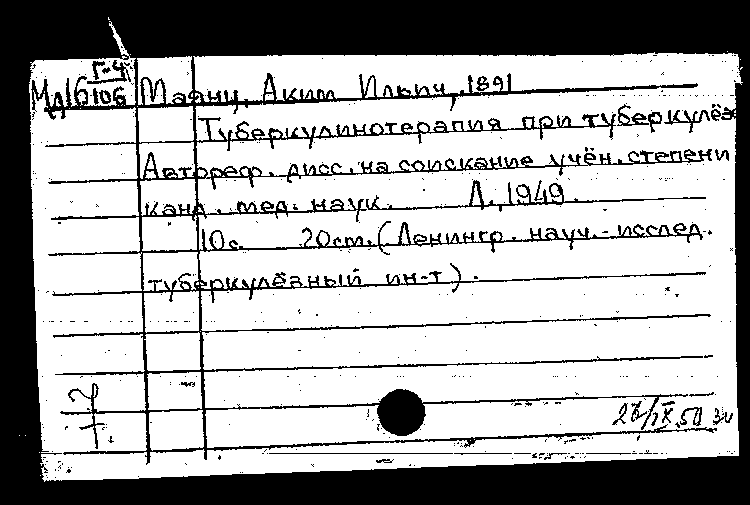 Г-4
Мд16 106 Маянц, Аким Ильич, 1891
Туберкулинотерапия при туберкулёзе
Автореф. дисс. на соискание учён. степени
канд. мед. наук. Л., 1949.
10с. 20cm. (Ленингр. науч.-исслед.
туберкулёзный ин-т).
IX.50